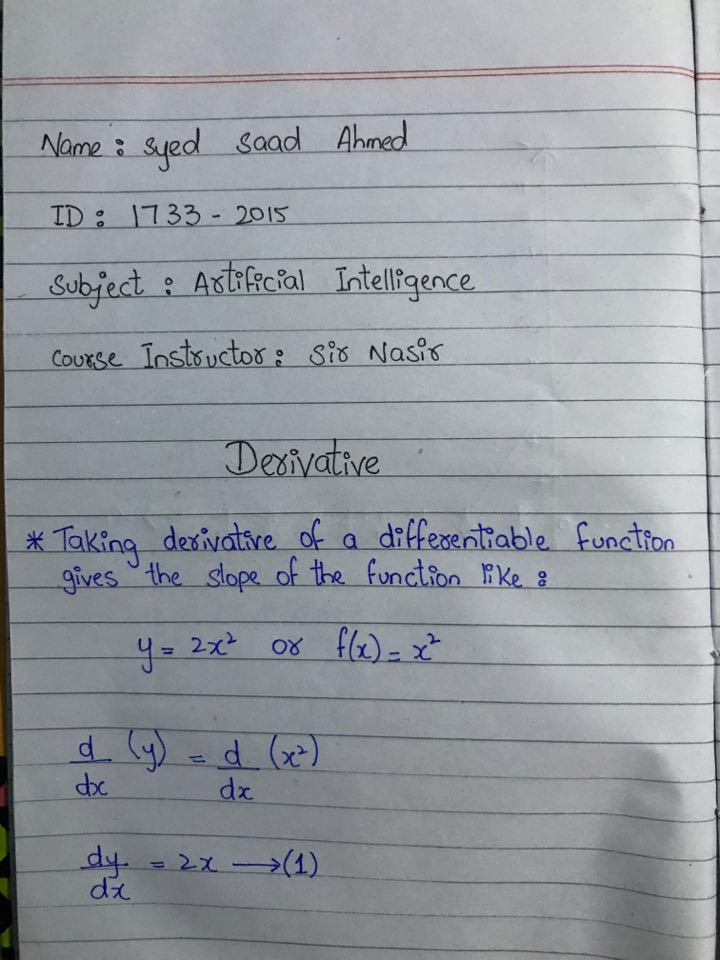 Name: Syed Saad Ahmed
ID: 1733-2015
Subject: Artificial Intelligence
Course Instructor: Sir Nasir
Derivative
* Taking derivative of a differentiable function
gives the slope of the function like:
y = 2x² or f(x) = x²
d/dx (y) = d/dx (x²)
dy/dx = 2x ⟶ (1)